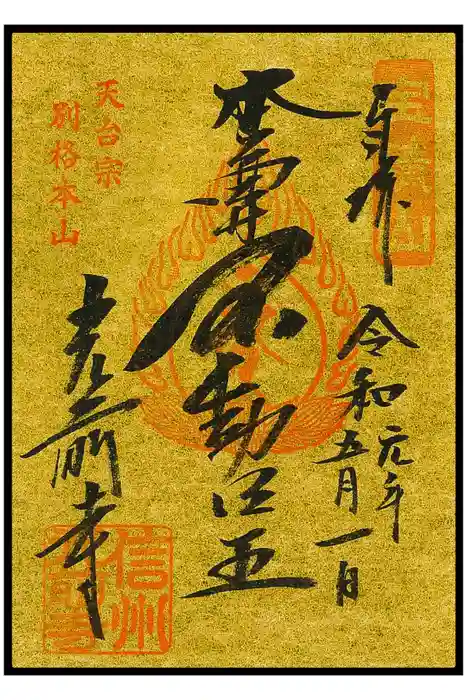 奉拝
令和元年
五月一日
本尊
不動明王
天台宗
別格本山
光前寺
信州
光前寺